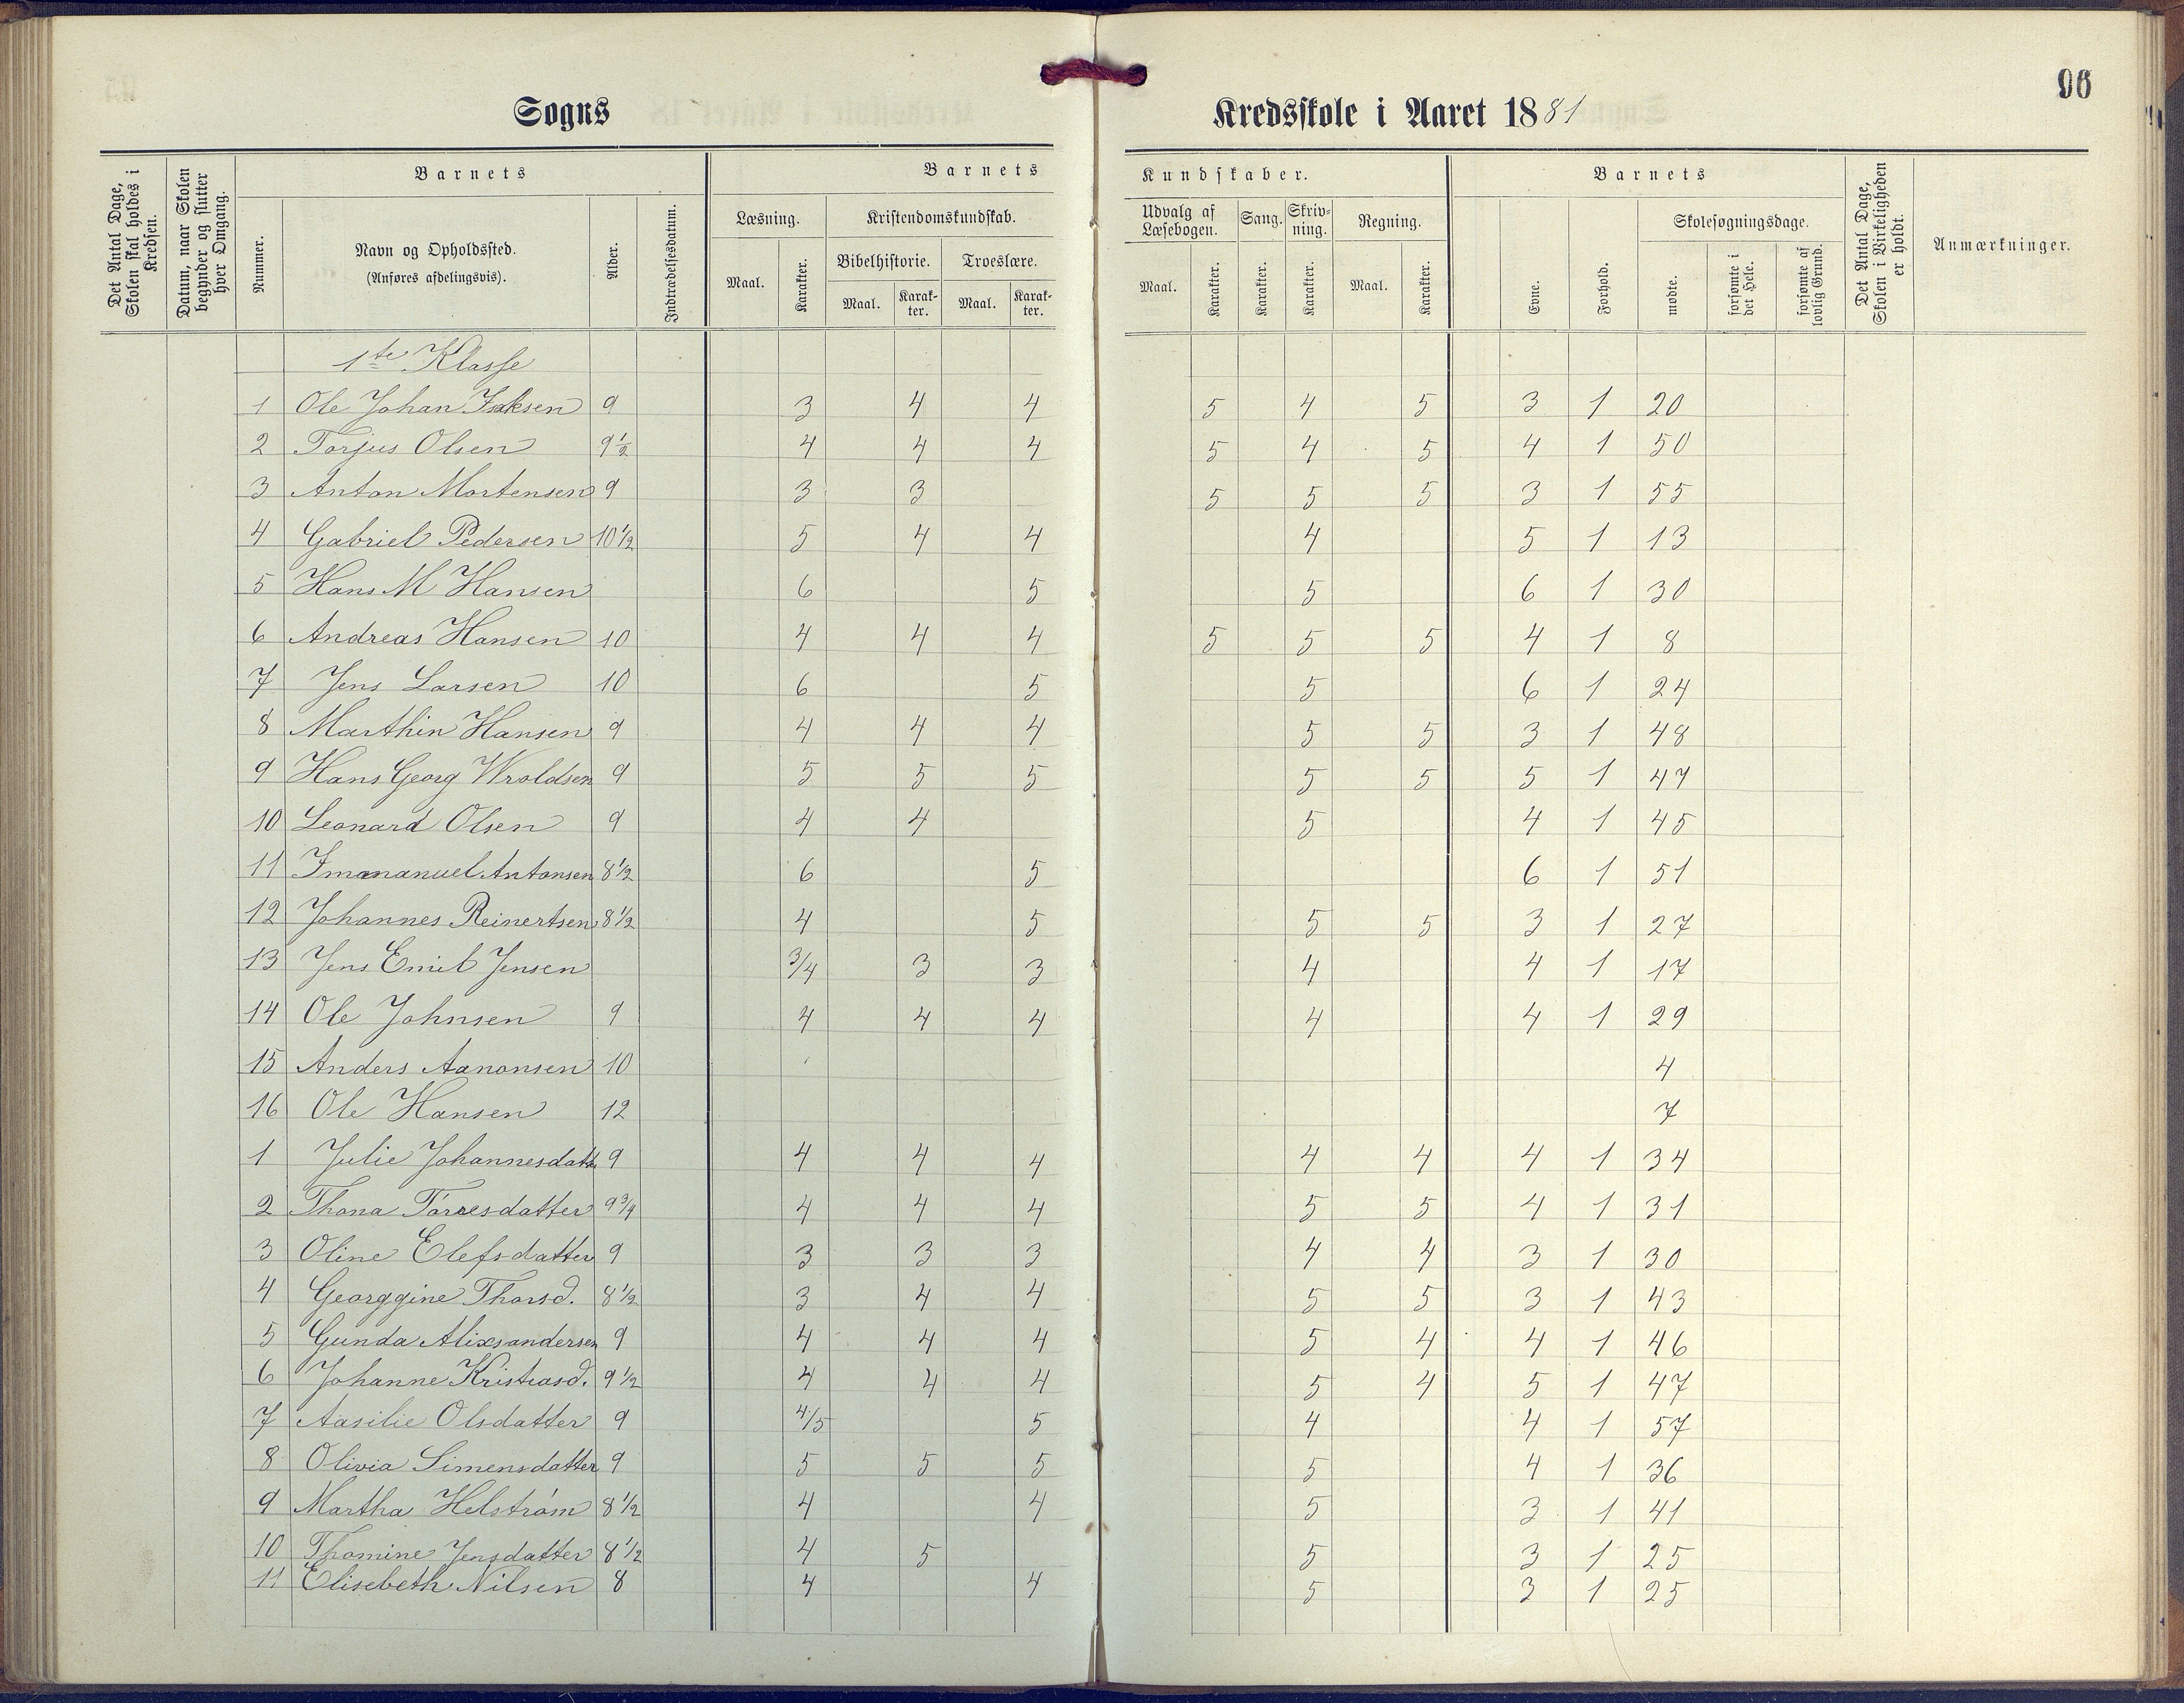 96
Sogns Kredsskole i Aaret 1881
Det Antal Dage, Skolen skal holdes i Kredsen.
Datum, naar Skolen begynder og slutter hver Omgang.
Barnets
Nummer.
Navn og Opholdssted.
(Anføres afdelingsvis).
Alder.
Indtrædelsesdatum.
Barnets Kundskaber.
Læsning.
Maal.
Karakter.
Kristendomskundskab.
Bibelhistorie.
Maal.
Karakter.
Troeslære.
Maal.
Karakter.
Udvalg af Læsebogen.
Maal.
Karakter.
Sang.
Karakter.
Skrivning.
Karakter.
Regning.
Maal.
Karakter.
Barnets
Evne.
Forhold.
Skolesøgningsdage.
mødte.
forsømte i det Hele.
forsømte af lovlig Grund.
Det Antal Dage, Skolen i Virkeligheden er holdt.
Anmærkninger.
1te Klasse
1 Ole Johan Isaksen 9 3 4 4 5 4 5 3 1 20
2 Torjus Olsen 9½ 4 4 4 5 4 5 4 1 50
3 Anton Mortensen 9 3 3 5 5 5 3 1 55
4 Gabriel Pedersen 10½ 5 4 4 4 5 1 13
5 Hans M Hansen 6 5 5 6 1 30
6 Andreas Hansen 10 4 4 4 5 5 5 4 1 8
7 Jens Larsen 10 6 5 5 6 1 24
8 Marthin Hansen 9 4 4 4 5 5 3 1 48
9 Hans Georg Wroldsen 9 5 5 5 5 5 5 1 47
10 Leonard Olsen 9 4 4 5 4 1 45
11 Imananuel Antonsen 8½ 6 5 6 1 51
12 Johannes Reinertsen 8½ 4 5 5 5 3 1 27
13 Jens Emil Jensen 3/4 3 3 4 4 1 17
14 Ole Johnsen 9 4 4 4 4 4 1 29
15 Anders Aanonsen 10 4
16 Ole Hansen 12 7
1 Julie Johannesdatt 9 4 4 4 4 4 4 1 34
2 Thona Torresdatter 9¾ 4 4 4 5 5 4 1 31
3 Oline Elefsdatter 9 3 3 3 4 4 3 1 30
4 Georggine Thorsd. 8½ 3 4 4 5 5 3 1 43
5 Gunda Alixsandersen 9 4 4 4 5 4 4 1 46
6 Johanne Kristiasd. 9½ 4 4 4 5 4 5 1 47
7 Aasilie Olsdatter 9 4/5 5 4 4 1 57
8 Olivia Simensdatter 9 5 5 5 5 4 1 36
9 Martha Helstrøm 8½ 4 4 5 3 1 41
10 Thomine Jensdatter 8½ 4 5 5 3 1 25
11 Elisebeth Nilsen 8 4 4 5 3 1 25